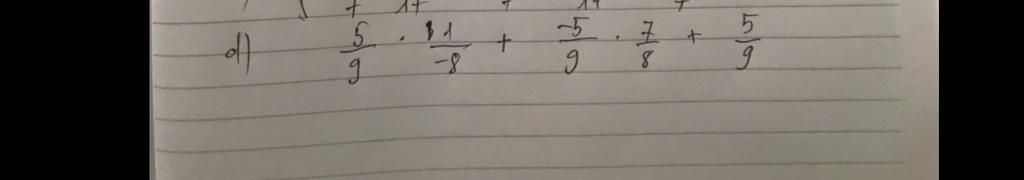 d) 5/9 · 1/-8 + -5/9 · 7/8 + 5/9